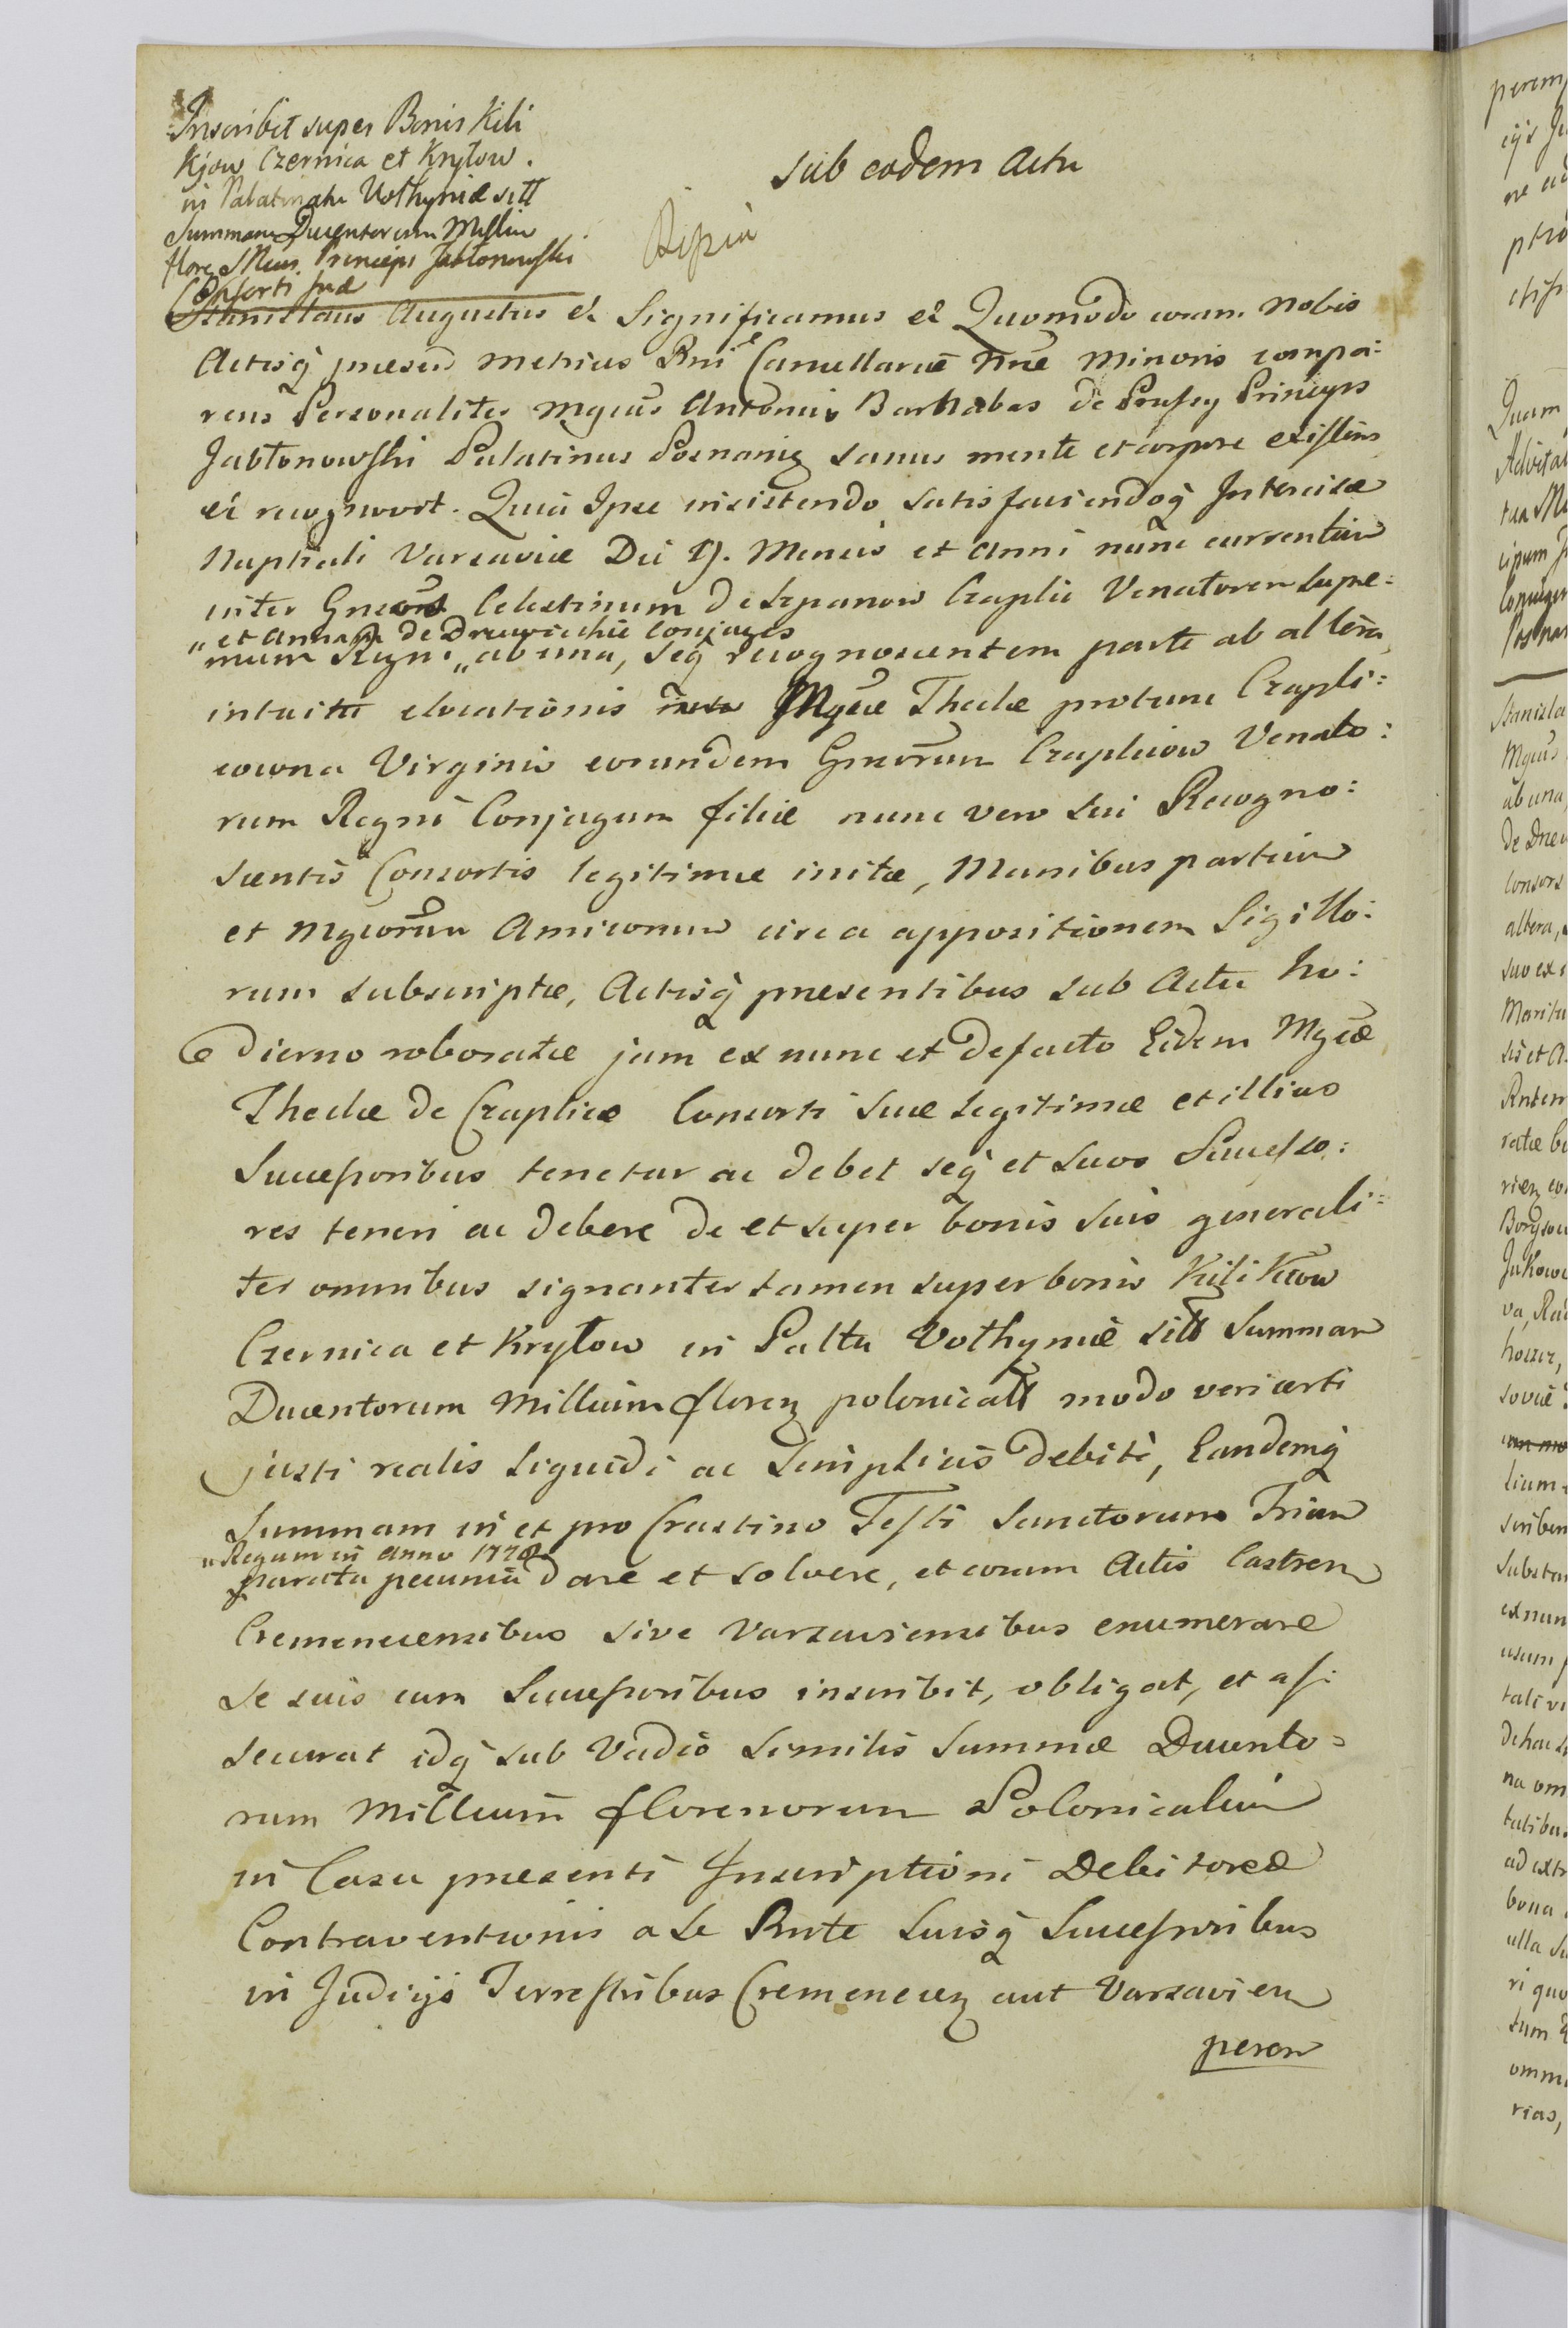 Inscribit super Bonis Kili
Kjow Czernica et Kryłow.
in Palatinatu Wołhyniæ sitt
Summam Ducentorum Millium
flore Mcus Princeps Jabłonowski
Consorti suæ
sub eodem actu
Stanislaus Augustus &c Significamus &c Quomodo coram Nobis
Actisq̃ præsen Metrices Rni Cancellariæ Nræ Minoris compa:
rens Personaliter Mgcus Antonius Barnabas de Prussy Princeps
Jabłonowski Palatinus Posnaniẽ sanus mente et corpore existens
&c recognovit. Quia Ipse insistendo satisfaciendoq̃ Intercisæ
Nuptiali Varsaviæ Die Mensis et Anni nunc currentium
inter Gnsos Celestinum de Szpanow Czaplic Venatorem Supre:
„et Annam de Drewicckie Conjuges
mum Regni „ab una, seq̃ recognoscentem parte ab altera,
intuitu elocationis Mgcæ Theclæ protunc Czapli:
cowna Virginis eorundem Gnsorum Czaplicow Venato:
rum Regni Conjugum filiæ nunc vero sui Recogno:
scentis Consortis legitimæ initæ, Manibus partium
et Mgcorum Amicorum circa appositionem Sigillo:
rum subscriptæ, Actisq̃ præsentibus sub Actu ho:
dierno roboratæ jam ex nunc et defacto Eidem Mgcæ
Theclæ de Czaplice Consorti Suæ legitimæ et illius
Successoribus tenetur ac debet seq̃ et suos Successo:
res teneri ac debere de et super bonis suis generali:
ter omnibus signanter tamen super bonis Kilikiow
Czernica et Kryłow in Palttu Wołhyniæ sitt Summam
Ducentorum Millium floren polonicall modo veri certi
justi realis liquidi ac simplicis debiti, Eandemq̃
Summam in et pro Crastino Festi Sanctorum Trium
„Regum in Anno 1778
parata pecunia dare et solvere, et coram Actis Castren
Cremenecensibus sive Varsaviensibus enumerare
se suis cum Successoribus inscribit, obligat, et as:
securat idq̃ sub Vadio similis Summæ Ducento:
rum Millium florenorum Polonicalium
in Casu præsenti Inscriptioni Debitoreæ
Contraventionis a se Rnte Suisq̃ Successoribus
in Judicijs Terrestribus Cremenecen aut Varsavien
perem